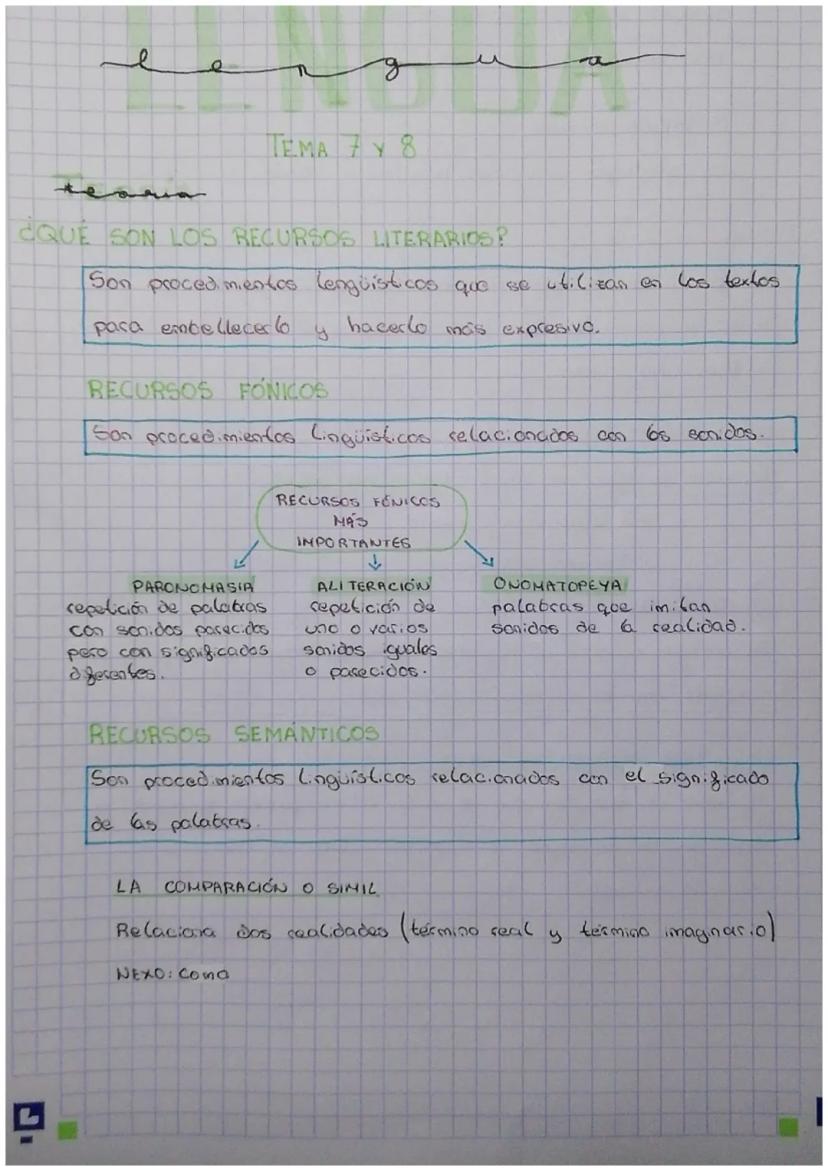 LENGUA
lengua
TEMA 7 Y 8
teoría
¿QUÉ SON LOS RECURSOS LITERARIOS?
Son procedimientos lengüísticos que se utilizan en los textos
para embellecerlo y hacerlo más expresivo.
RECURSOS FÓNICOS
Son procedimientos lingüísticos relacionados con los sonidos.
RECURSOS FÓNICOS
MÁS
IMPORTANTES
PARONOMASIA
repetición de palabras
con sonidos parecidos
pero con significados
diferentes.
ALITERACIÓN
repetición de
uno o varios
sonidos iguales
o parecidos.
ONOMATOPEYA
palabras que imitan
sonidos de la realidad.
RECURSOS SEMÁNTICOS
Son procedimientos lingüísticos relacionados con el significado
de las palabras.
LA COMPARACIÓN O SIMIL
Relaciona dos realidades (término real y término imaginario)
NEXO: como